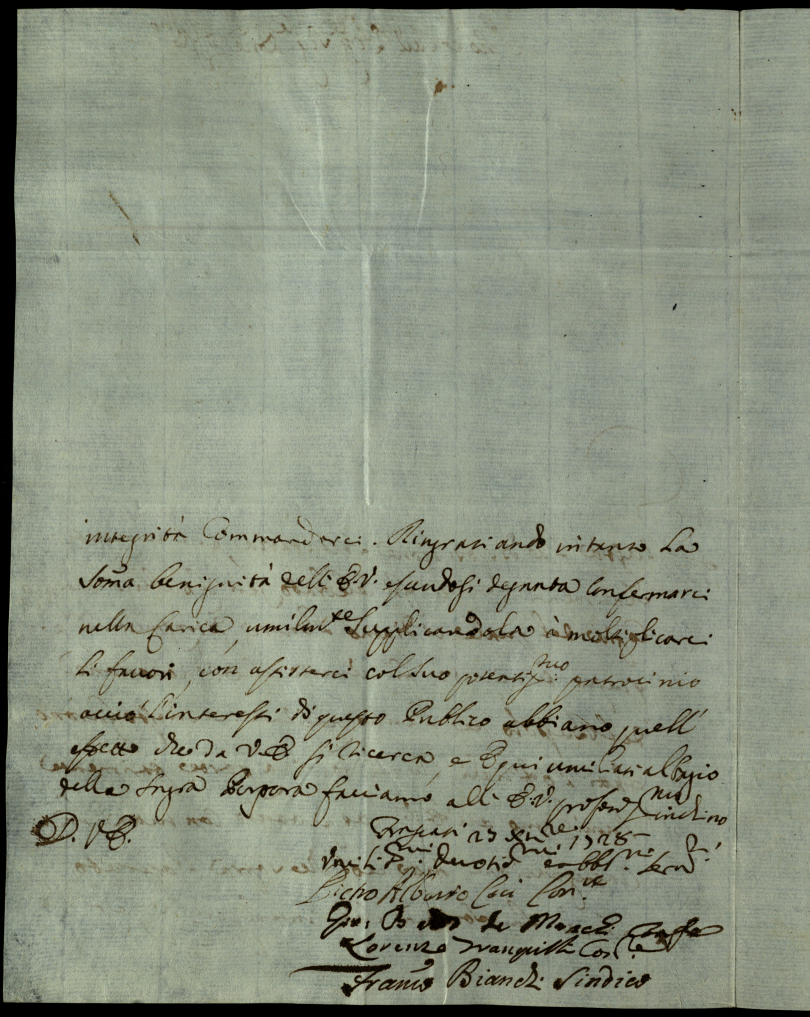 integrità Commandarci. Ringratiando intanto La
Soma benignità dell E.V. essendosi degnata Confermarci
nella Carica, umilmte Supplicandola à moltiplicarci
li favori, con assisterci col suo potentismo patrocinio
acciò l'interessi di questo Publico abbiano quell'
effetto che da V.E. si ricerca, e Equi umiliati al bagio
della Sagra Porpora facciamo all E.V. profondmo inchino
D. V.E.
Frascati 23 Xmbre 1728
Umilismi Devotismi e obblmi Servri
Pietro Cari Conre
Gio. de Marchi
Lorenzo Tranquilli Conre
Franco Bianchi Sindico